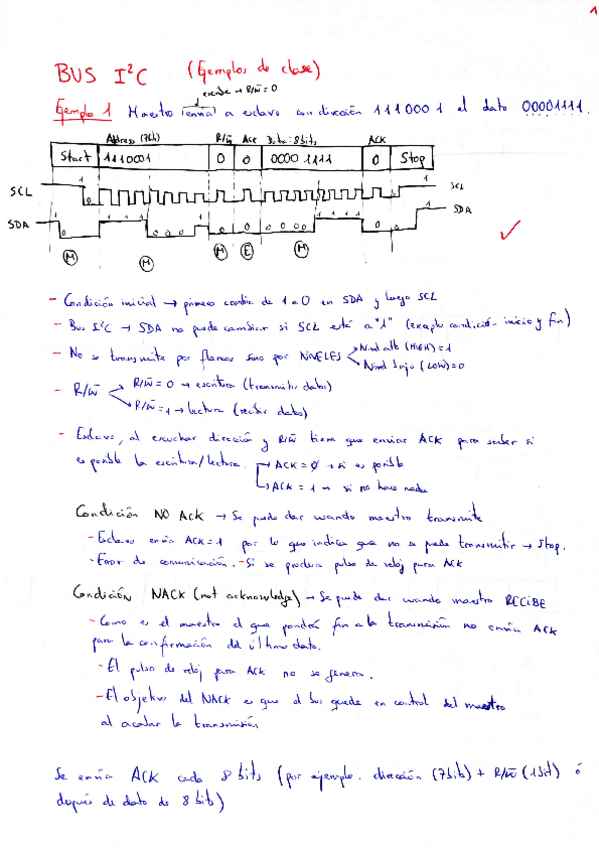 1
BUS I²C (Ejemplos de clase)
escribe → R/W̅=0
Ejemplo 1 Maestro envía a esclavo con dirección 1110001 el dato 00001111.
Address (7bits) R/W̅ ACK Data: 8bits ACK
Start 1110001 0 0 0000 1111 0 Stop
SCL 1 0 1 SCL
SDA 1 0 1 1 1 0 0 0 1 0 0 0 0 0 0 1 1 1 1 0 0 1 SDA
M M M E M
- Condición inicial → primero cambia de 1 a 0 en SDA y luego SCL
- Bus I²C → SDA no puede cambiar si SCL está a "1" (excepto condición inicio y fin)
- No se transmite por flancos sino por NIVELES Nivel alto (HIGH)=1
Nivel bajo (LOW)=0
- R/W̅ R/W̅=0 → escritura (transmitir datos)
R/W̅=1 → lectura (recibir datos)
- Esclavo, al escuchar dirección y R/W̅ tiene que enviar ACK para saber si
es posible la escritura/lectura. → ACK = 0 → si es posible
→ ACK = 1 → si no hace nada
Condición NO ACK → Se puede dar cuando maestro transmite
- Esclavo envía ACK=1 por lo que indica que no se puede transmitir → Stop.
- Error de comunicación. - Sí se produce pulso de reloj para ACK
Condición NACK (not acknowledge) → Se puede dar cuando maestro RECIBE
- Como es el maestro el que pondrá fin a la transmisión no envía ACK
para la confirmación del último dato.
- El pulso de reloj para ACK no se genera.
- El objetivo del NACK es que el bus quede en control del maestro
al acabar la transmisión
Se envía ACK cada 8 bits (por ejemplo: dirección (7bits) + R/W̅ (1bit) ó
después de dato de 8 bits)